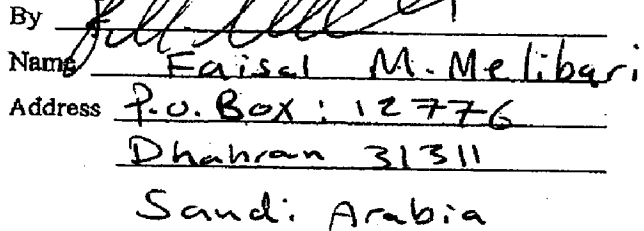 By
Name Faisal M. Melibari
Address P.O. Box : 12776
Dhahran 31311
Saudi Arabia